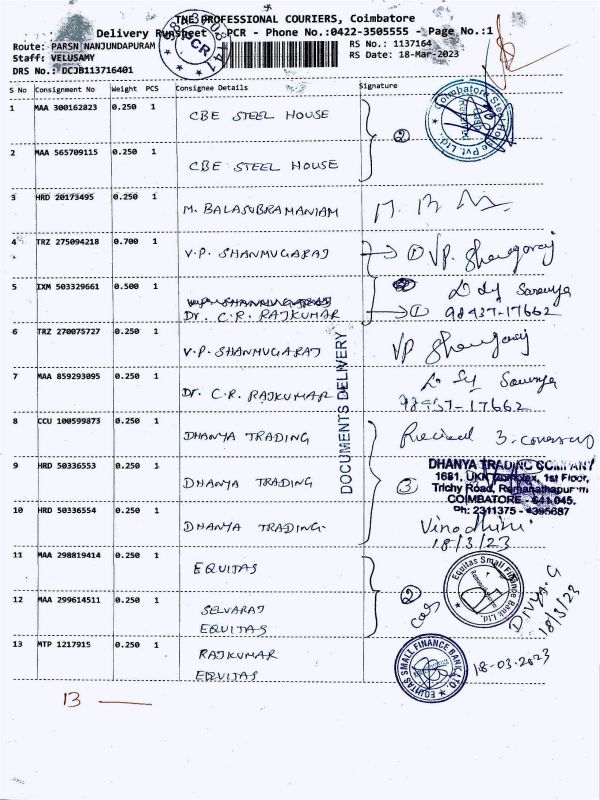 THE PROFESSIONAL COURIERS, Coimbatore
Delivery Runsheet PCR - Phone No.:0422-3505555 - Page No.:1
Route: PARSN NANJUNDAPURAM
RS No.: 1137164
Staff: VELUSAMY
RS Date: 18-Mar-2023
DRS No.: DCJB113716401
PCR
S No Consignment No Weight PCS Consignee Details Signature
1 MAA 300162823 0.250 1 CBE STEEL HOUSE
Coimbatore Steel House Pvt Ltd.
2
2 MAA 565709115 0.250 1 CBE STEEL HOUSE
3 HRD 20173495 0.250 1 M. BALASUBRAMANIAM
4 TRZ 275094218 0.700 1 V.P. SHANMUGARAJ 1 VP.
5 IXM 503329661 0.500 1 Dr. C.R. RAJKUMAR 1 98437-17662
6 TRZ 270075727 0.250 1 V.P. SHANMUGARAJ VP
7 MAA 859293095 0.250 1 Dr. C.R. RAJKUMAR
98437-17662
DOCUMENTS DELIVERY
8 CCU 100599873 0.250 1 DHANYA TRADING
9 HRD 50336553 0.250 1 DHANYA TRADING 3
DHANYA TRADING COMPANY
1681, UKK Complex, 1st Floor,
Trichy Road, Ramanathapuram
COIMBATORE - 641 045.
Ph: 2311375 - 4395687
10 HRD 50336554 0.250 1 DHANYA TRADING Vinodhini
18/3/23
11 MAA 298819414 0.250 1 EQUITAS
Equitas Small Finance Bank Ltd.
12 MAA 299614511 0.250 1 SELVARAJ
EQUITAS
2
Divya. G
18/3/23
13 MTP 1217915 0.250 1 RAJKUMAR
EQUITAS
EQUITAS SMALL FINANCE BANK LTD
18-03-2023
13